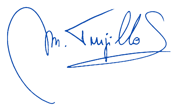 m. Trujillo S